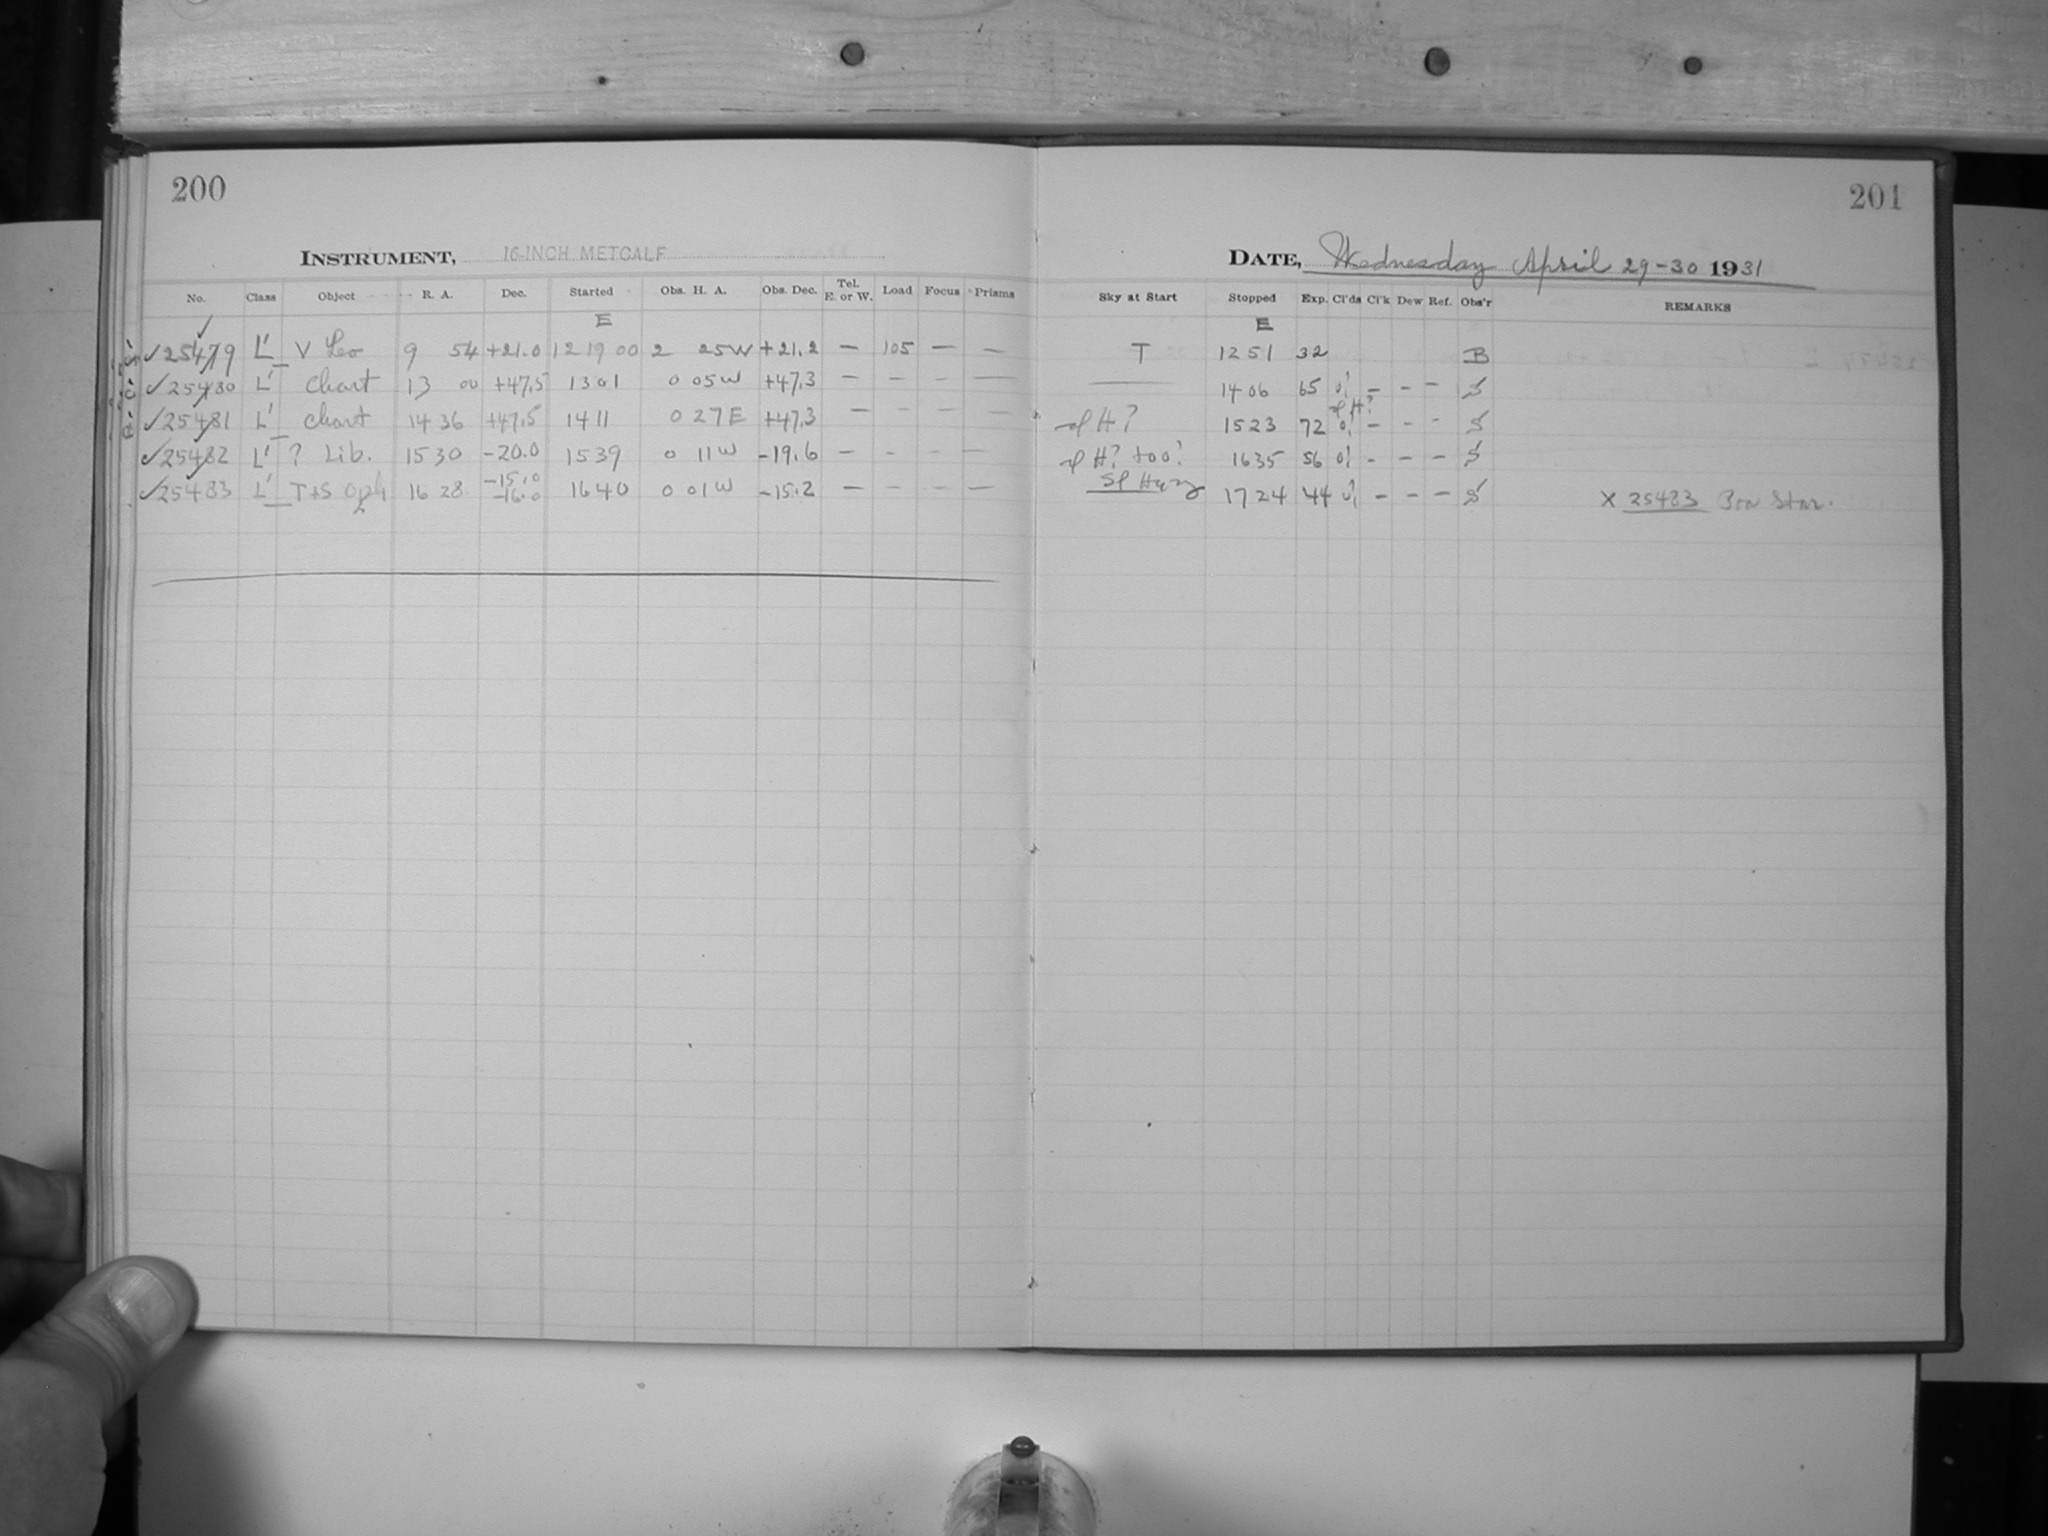 200
INSTRUMENT, 16-INCH METCALF
No. Class Object R. A. Dec. Started Obs. H. A. Obs. Dec. Tel. E. or W. Load Focus Prisms
E
25479 L' V Leo 9 54 +21.0 12 19 00 2 25W +21.2 — 105 — —
25480 L' Chart 13 00 +47.5 1301 0 05W +47.3 — - - —
25481 L' Chart 14 36 +47.5 1411 0 27E +47.3 — - - —
25482 L' ? Lib. 15 30 -20.0 1539 0 11W -19.6 - - - —
25483 L' T+S Oph 16 28 -15.0 -16.0 1640 0 01W -15.2 — - - —
201
DATE, Wednesday April 29-30 1931
Sky at Start Stopped Exp. Cl'ds Cl'k Dew Ref. Obs'r REMARKS
E
T 1251 32 B
— 1406 65 0! - - - S
sl H? 1523 72 sl H? 0! - - - S
sl H? too? 1635 56 0! - - - S
Sl Hazy 1724 44 0! - - - S X 25483 Star.